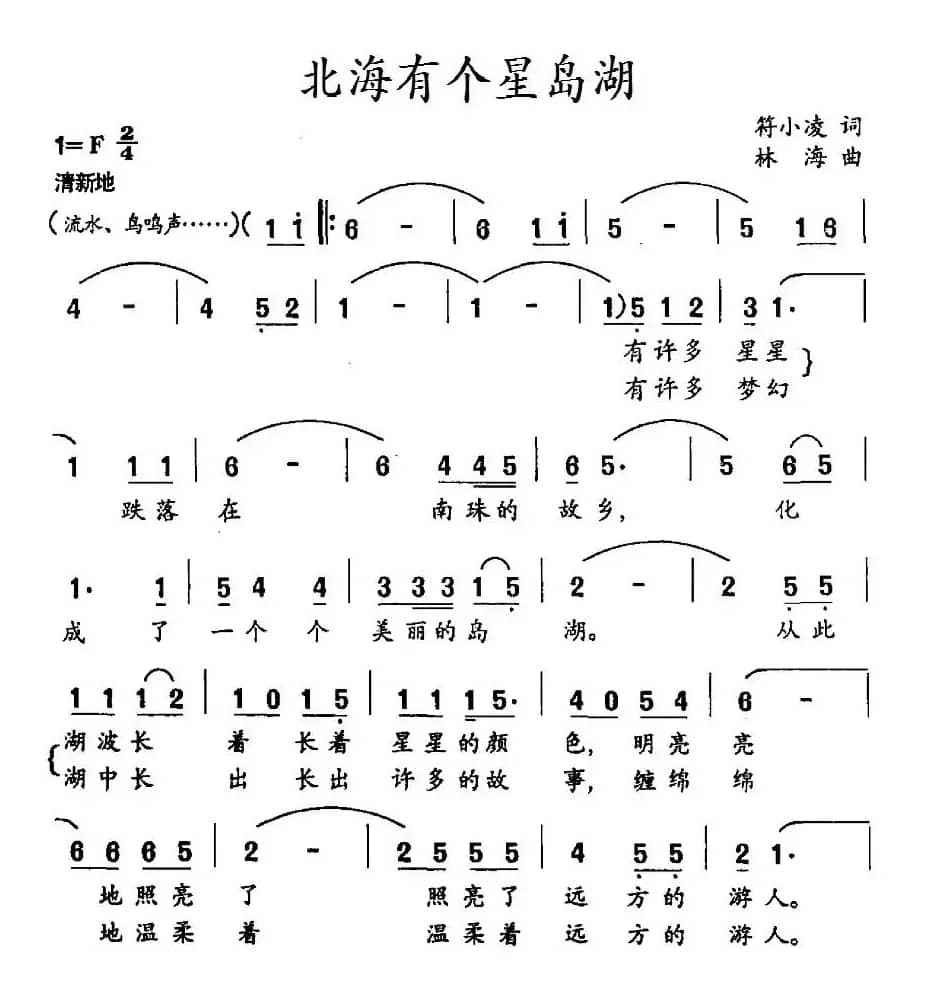 北海有个星岛湖
1=F 2/4
符小凌 词
林 海 曲
清新地
(流水、鸟鸣声……)( 1 i ‖: 6 - | 6 1 i | 5 - | 5 1 6 |
4 - | 4 5 2 | 1 - | 1 - | 1) 5 1 2 | 3 1· |
有许多 星星
有许多 梦幻
1 1 1 | 6 - | 6 4 4 5 | 6 5· | 5 6 5 |
跌落 在 南珠的 故乡, 化
1· 1 | 5 4 4 | 3 3 3 1 5 | 2 - | 2 5 5 |
成 了 一个 个 美丽的岛 湖。 从此
1 1 1 2 | 1 0 1 5 | 1 1 1 5· | 4 0 5 4 | 6 - |
湖波长 着 长着 星星的颜 色, 明亮 亮
湖中长 出 长出 许多的故 事, 缠绵 绵
6 6 6 5 | 2 - | 2 5 5 5 | 4 5 5 | 2 1· |
地照亮 了 照亮了 远 方的 游人。
地温柔 着 温柔着 远 方的 游人。